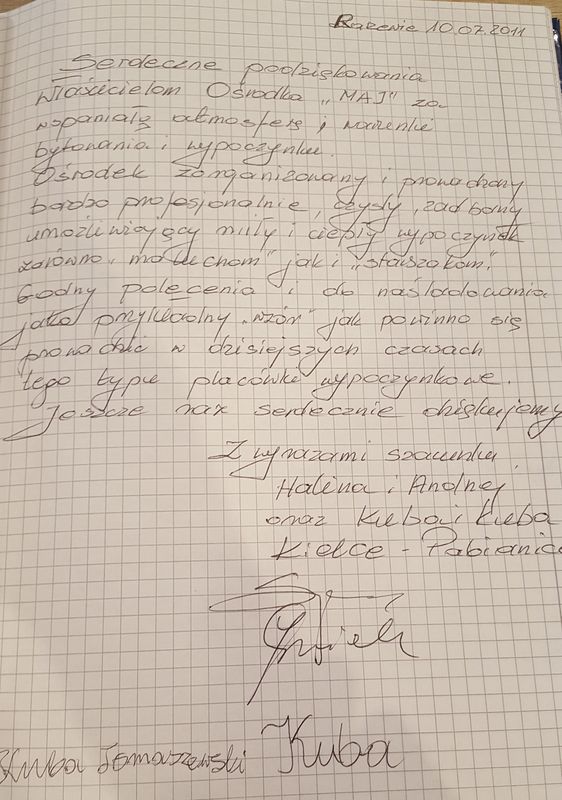 Rarzewie 10.07.2011
Serdeczne podziękowania
właścicielom Ośrodka „MAJ" za
wspaniałą atmosferę i warunki
bytowania i wypoczynku.
Ośrodek zorganizowany i prowadzony
bardzo profesjonalnie, czysty, zadbany
umożliwiający miły i ciepły wypoczynek
zarówno „maluchom" jak i „starszakom".
Godny polecenia i do naśladowania
jako przykładny „wzór" jak powinno się
prowadzić w dzisiejszych czasach
tego typu placówki wypoczynkowe.
Jeszcze raz serdecznie dziękujemy
Z wyrazami szacunku
Halina i Andrzej
oraz Kuba i Kuba
Kielce - Pabianice
Kuba Tomaszewski Kuba